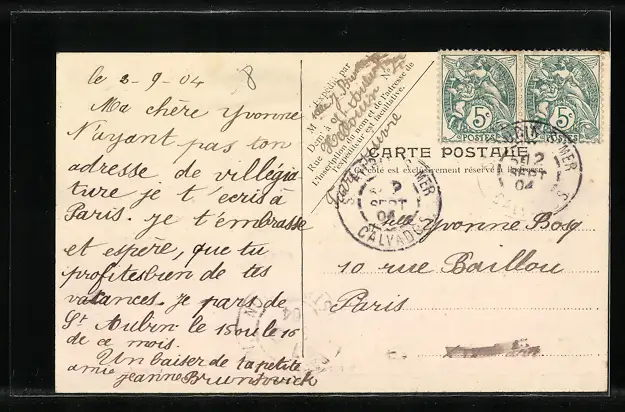 le 2-9-04
8
Ma chère Yvonne
N'ayant pas ton
adresse de villégia
ture je t'écris à
Paris. je t'embrasse
et espère, que tu
profites bien de tes
vacances. je pars de
St Aubin le 15 ou le 16
de ce mois.
Un baiser de ta petite
amie jeanne Brunswick
Expédié par
M
N°
Dem t à
Rue
L'inscription du nom et de l'adresse de
l'expéditeur est facultative.
CARTE POSTALE
Ce côté est exclusivement réservé à l'adresse
5c
POSTES
5c
POSTES
MER
2
SEPT
04
CALVADOS
MER
2
SEPT
04
CALVADOS
Melle Yvonne Bosq
10 rue Baillou
Paris